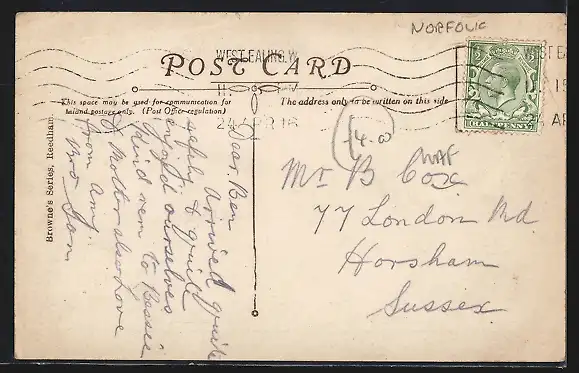 NORFOLK
WEST EALING. W
POST CARD
24 APR 16
This space may be used for communication for
inland postage only. (Post Office regulation)
The address only to be written on this side
HALFPENNY
WEST EA
24 AP
Browne's Series, Reedham.
Dear Ben
arrived quite
safely & quite
enjoyed ourselves
Kind rem to Bessie
& Mother also love
from Am
14.0
Mr B Cox
77 London Rd
Horsham
Sussex